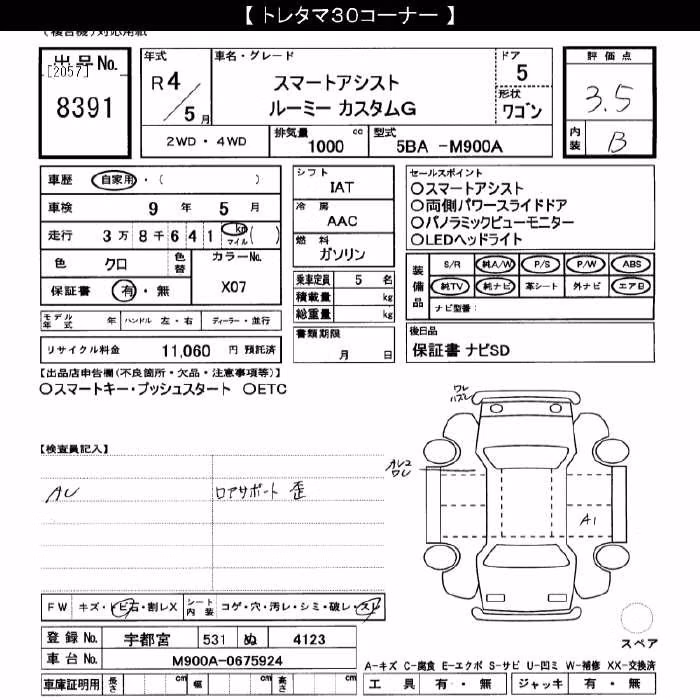 【 トレタマ30コーナー 】
(複合機)対応用紙
出品No.
[2057]
8391
年式
R4/5月
車名・グレード
スマートアシスト
ルーミー カスタムG
ドア
5
形状
ワゴン
2WD・4WD
排気量
1000 cc
型式
5BA -M900A
評価点
3.5
内装
B
車歴 自家用・( )
車検 9年 5月
走行 3万8千641 km マイル ( )
色 クロ 色替
カラーNo.
X07
保証書 有・無
モデル年式 年 ハンドル 左・右 ディーラー・並行
リサイクル料金 11,060 円 預託済
シフト
IAT
冷房
AAC
燃料
ガソリン
乗車定員 5 名
積載量 kg
総重量 kg
書類期限
月 日
セールスポイント
○スマートアシスト
○両側パワースライドドア
○パノラミックビューモニター
○LEDヘッドライト
装備品
S/R 純A/W P/S P/W ABS
純TV 純ナビ 革シート 外ナビ エアB
ナビ型番:
後日品
保証書 ナビSD
【出品店申告欄(不良箇所・欠品・注意事項等)】
○スマートキー・プッシュスタート ○ETC
【検査員記入】
ロアサポート 歪
ワレ
ハズレ
ワレ
A1
FW キズ・トビ石・割レX
シート内装 コゲ・穴・汚レ・シミ・破レ・スレ
登録No. 宇都宮 531 ぬ 4123
車台No. M900A-0675924
車庫証明用 長さ cm 幅 cm 高さ cm
スペア
A-キズ C-腐食 E-エクボ S-サビ U-凹ミ W-補修 XX-交換済
工具 有・無 ジャッキ 有・無